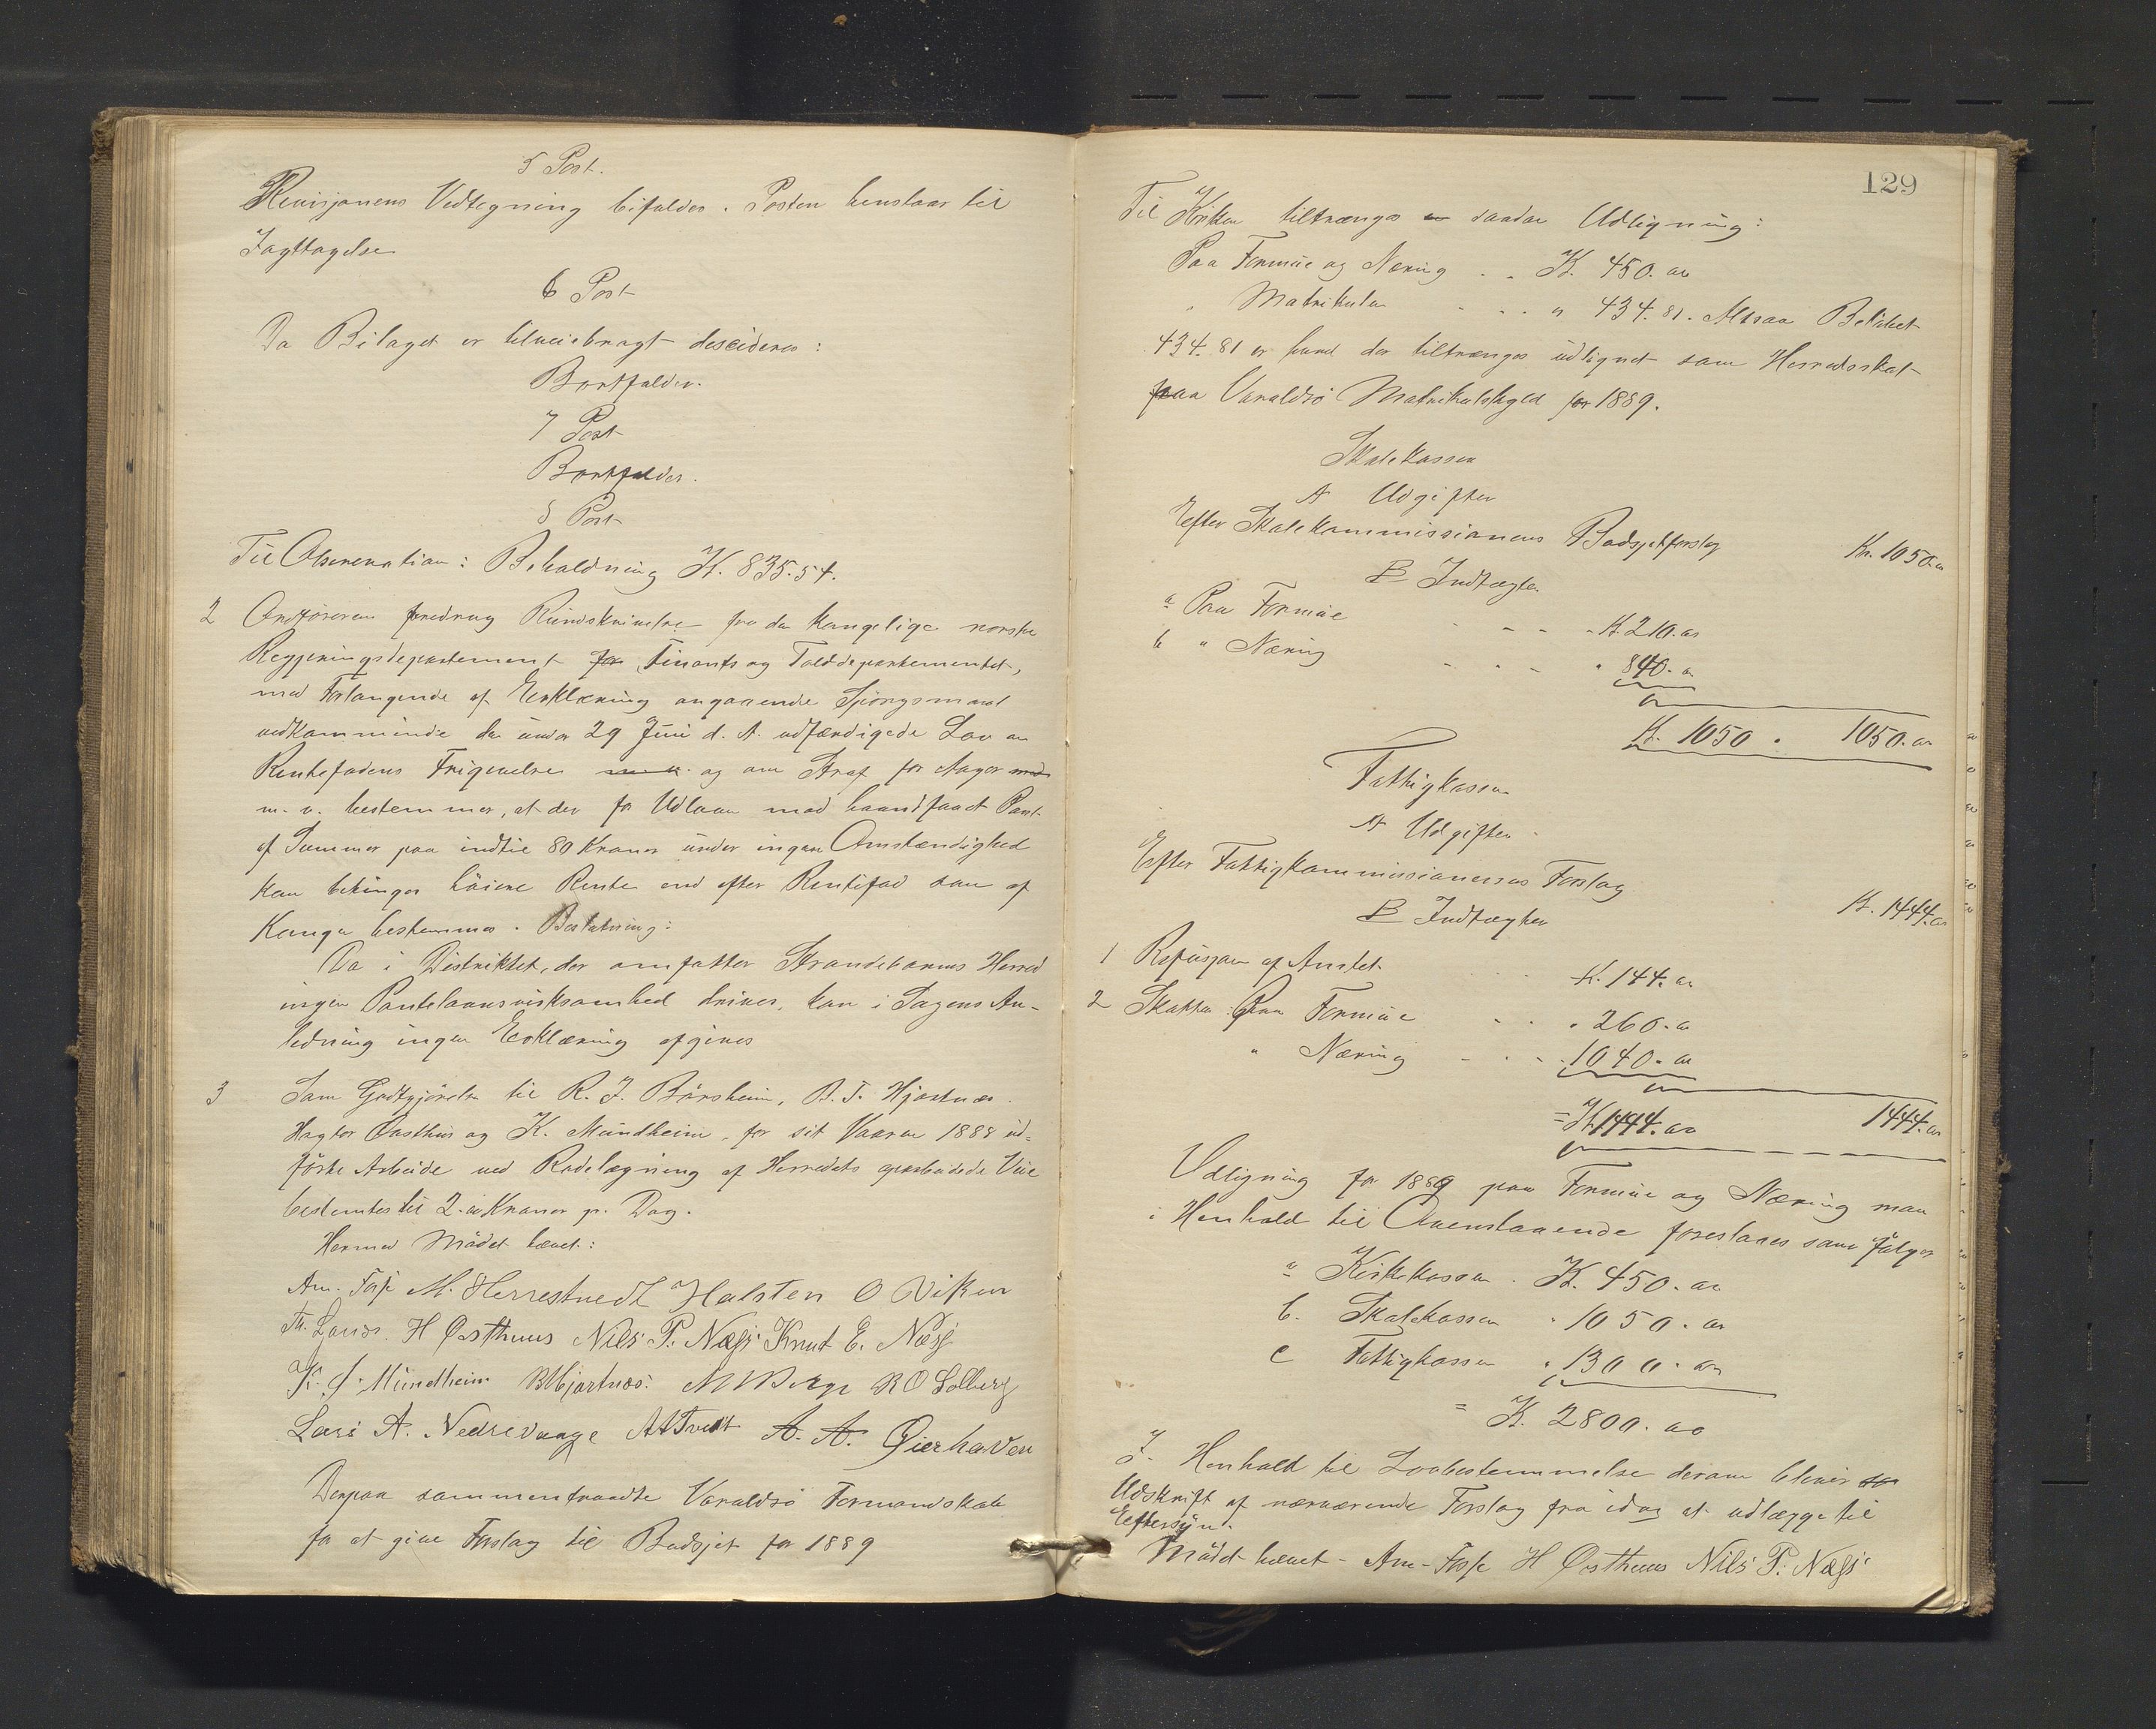 5 Post.
Revisjonens Vedtegning bifaldes. Posten henstaar til
Iagttagelse
6 Post
Da Bilaget er tilveiebragt desideres:
Bortfalder.
7 Post
Bortfalder.
8 Post
Til Observation: Beholdning K. 835.54.
2 Ordføreren foredrog Rundskrivelse fra den kongelige norske
Regjeringsdepartement for Finants og Tolddepartementet,
med Forlangende af Erklæring angaaende Spörgsmaal
vedkommende den under 29 Juni d. A. udfærdigede Lov om
Rentefodens Frigivelse og om Straf for Aager
m. v. bestemmer, at der for Udlaan mod haandfaaet Pant
af Summer paa indtil 80 Kroner under ingen Omstændighed
kan betinges höiere Rente end efter Rentefod som af
Kongen bestemmes. Beslutning:
Da i Distriktet, der omfatter Strandebarms Herred
ingen Pantelaansvirksomhed drives, kan i Sagens An-
ledning ingen Erklæring afgives
3 Som Godtgjörelse til R. J. Börsheim, B. T. Hjartnæs
Hagtor Østhus og K. Mundheim, for sit Vaaren 1888 ud=
förte Arbeide ved Rodelægning af Herredets oparbeidede Veie
bestemtes til 2.00 Kroner pr. Dag.
Hermed Mödet hævet:
Am. Fosse M. Herrestvedt Halsten O Viken
Th. Laurs. H Østhuus Nils P. Næss Knut E. Næss
K. J. Mundheim B Hjartnæs. M Berge R O Solberg
Lars A. Nedrevaage A A Tvedt A. A. Øierhavn
Derpaa sammentraadte Varaldsö Formandskab
for at give Forslag til Budsjet for 1889
129
Til Kirken tiltrænges saadan Udligning:
Paa Formue og Næring . . K. 450. 00
" Matrikulen . . . " 434. 81. Altsaa Beløbet
434.81 er hvad der tiltrænges udlignet som Herredsskat
paa Varaldsö Matrikulskyld for 1889.
Skolekassen
A Udgifter
Efter Skolekommissionens Budsjetforslag Kr. 1050.00
B Indtægter
a Paa Formue - - - K. 210.00
b " Næring - - - " 840.00
K. 1050 . 1050.00
Fattigkassen
A Udgifter
Efter Fattigkommissionernes Forslag K. 1444.00
B Indtægter
1 Refusjon af Amtet K. 144. 00
2 Skatten: Paa Formue . . " 260. 00
" Næring - - - 1040. 00
= K. 1444. 00 1444. 00
Udligning for 1889 paa Formue og Næring man
i Henhold til Ovenstaaende foreslaaes som følger
a Kirkekassen . K. 450. 00
b. Skolekassen " 1050. 00
c Fattigkassen " 1300. 00
= K. 2800. 00
I Henhold til Lovbestemmelse derom bliver
Udskrift af nærværende Forslag fra idag at udlægge til
Eftersyn.
Mödet hævet - Am- Fosse H Østhuus Nils P. Næss